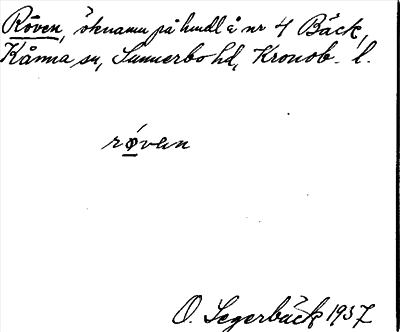 Röven, öknamn på hmdl å nr 4 Bäck,
Kånna sn, Sunnerbo hd, Kronob. l.
røven
O. Segerbäck 1937